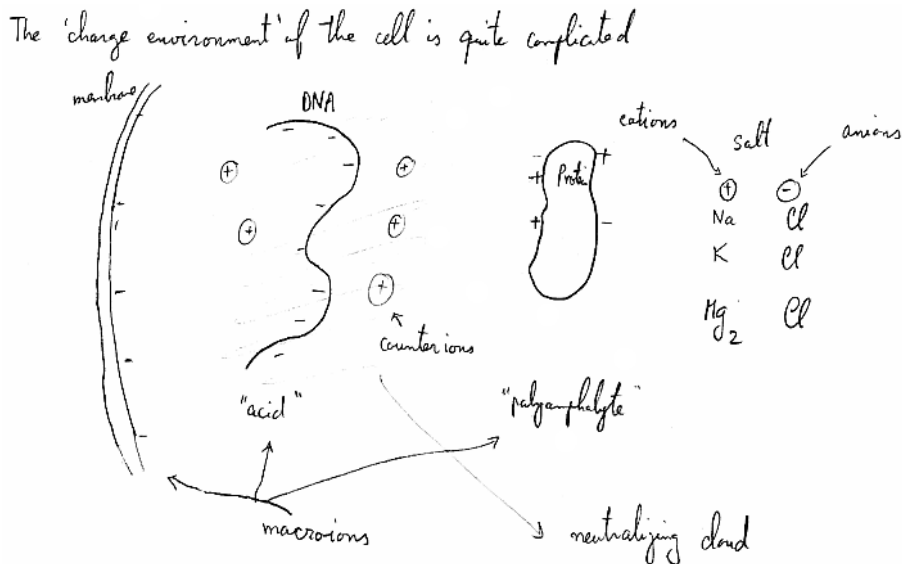 The 'charge environment' of the cell is quite complicated
membrane
DNA
cations
salt
anions
- Protein +
+
+ -
+ -
Na Cl
K Cl
Mg2 Cl
+
+
+
+
+
counterions
"acid"
"polyampholyte"
macroions
neutralizing cloud